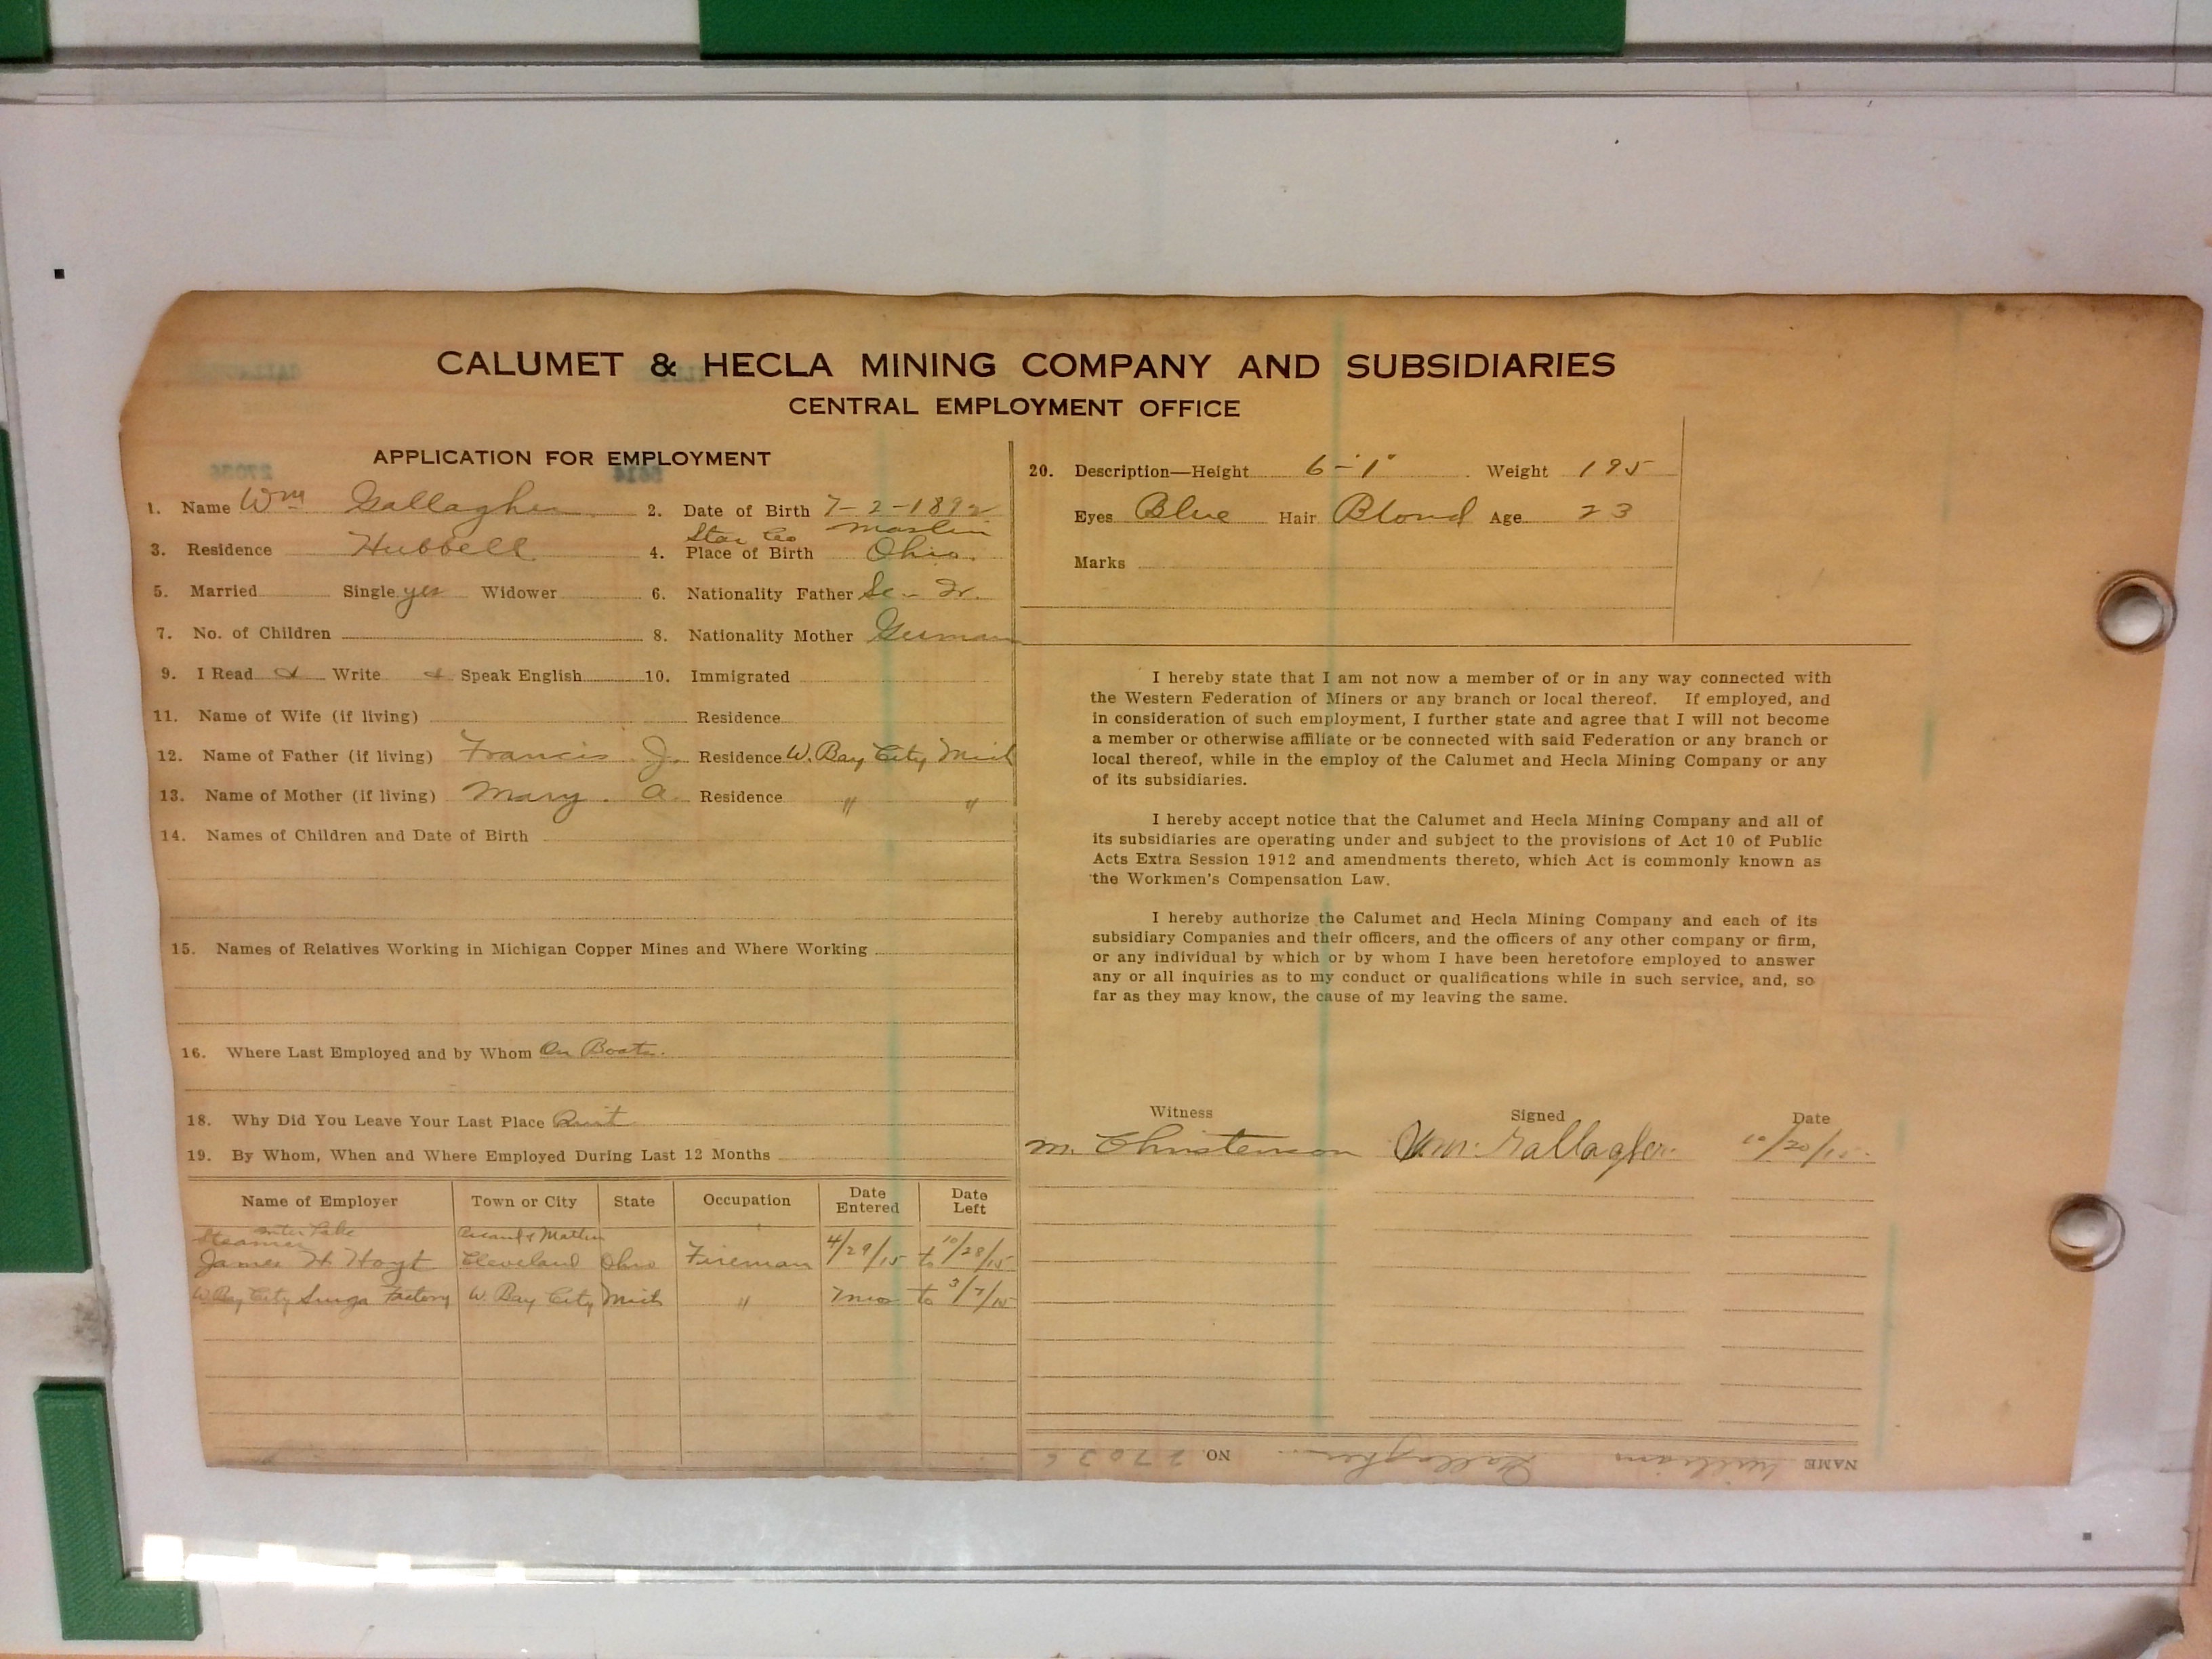 CALUMET & HECLA MINING COMPANY AND SUBSIDIARIES
CENTRAL EMPLOYMENT OFFICE
APPLICATION FOR EMPLOYMENT
1. Name Wm Gallagher 2. Date of Birth 7-2-1892
3. Residence Hubbell 4. Place of Birth Ohio
5. Married Single yes Widower 6. Nationality Father Sc - Ir.
7. No. of Children 8. Nationality Mother German
9. I Read & Write & Speak English 10. Immigrated
11. Name of Wife (if living) Residence
12. Name of Father (if living) Francis J. Residence W. Bay City Mich
13. Name of Mother (if living) Mary A. Residence " "
14. Names of Children and Date of Birth
15. Names of Relatives Working in Michigan Copper Mines and Where Working
16. Where Last Employed and by Whom On Boats.
18. Why Did You Leave Your Last Place Quit
19. By Whom, When and Where Employed During Last 12 Months
Name of Employer Town or City State Occupation Date Entered Date Left
Steamer Inter Lake
James H Hoyt Cleveland Ohio Fireman 4/29/15 to 10/28/15
W. Bay City Factory W. Bay City Mich " to 3/7/15
20. Description—Height 6-1" Weight 195
Eyes Blue Hair Blond Age 23
Marks
I hereby state that I am not now a member of or in any way connected with
the Western Federation of Miners or any branch or local thereof. If employed, and
in consideration of such employment, I further state and agree that I will not become
a member or otherwise affiliate or be connected with said Federation or any branch or
local thereof, while in the employ of the Calumet and Hecla Mining Company or any
of its subsidiaries.
I hereby accept notice that the Calumet and Hecla Mining Company and all of
its subsidiaries are operating under and subject to the provisions of Act 10 of Public
Acts Extra Session 1912 and amendments thereto, which Act is commonly known as
the Workmen's Compensation Law.
I hereby authorize the Calumet and Hecla Mining Company and each of its
subsidiary Companies and their officers, and the officers of any other company or firm,
or any individual by which or by whom I have been heretofore employed to answer
any or all inquiries as to my conduct or qualifications while in such service, and, so
far as they may know, the cause of my leaving the same.
Witness Signed Date
M. Christenson Wm. Gallagher 10/20/15
NAME William Gallagher NO. 27036